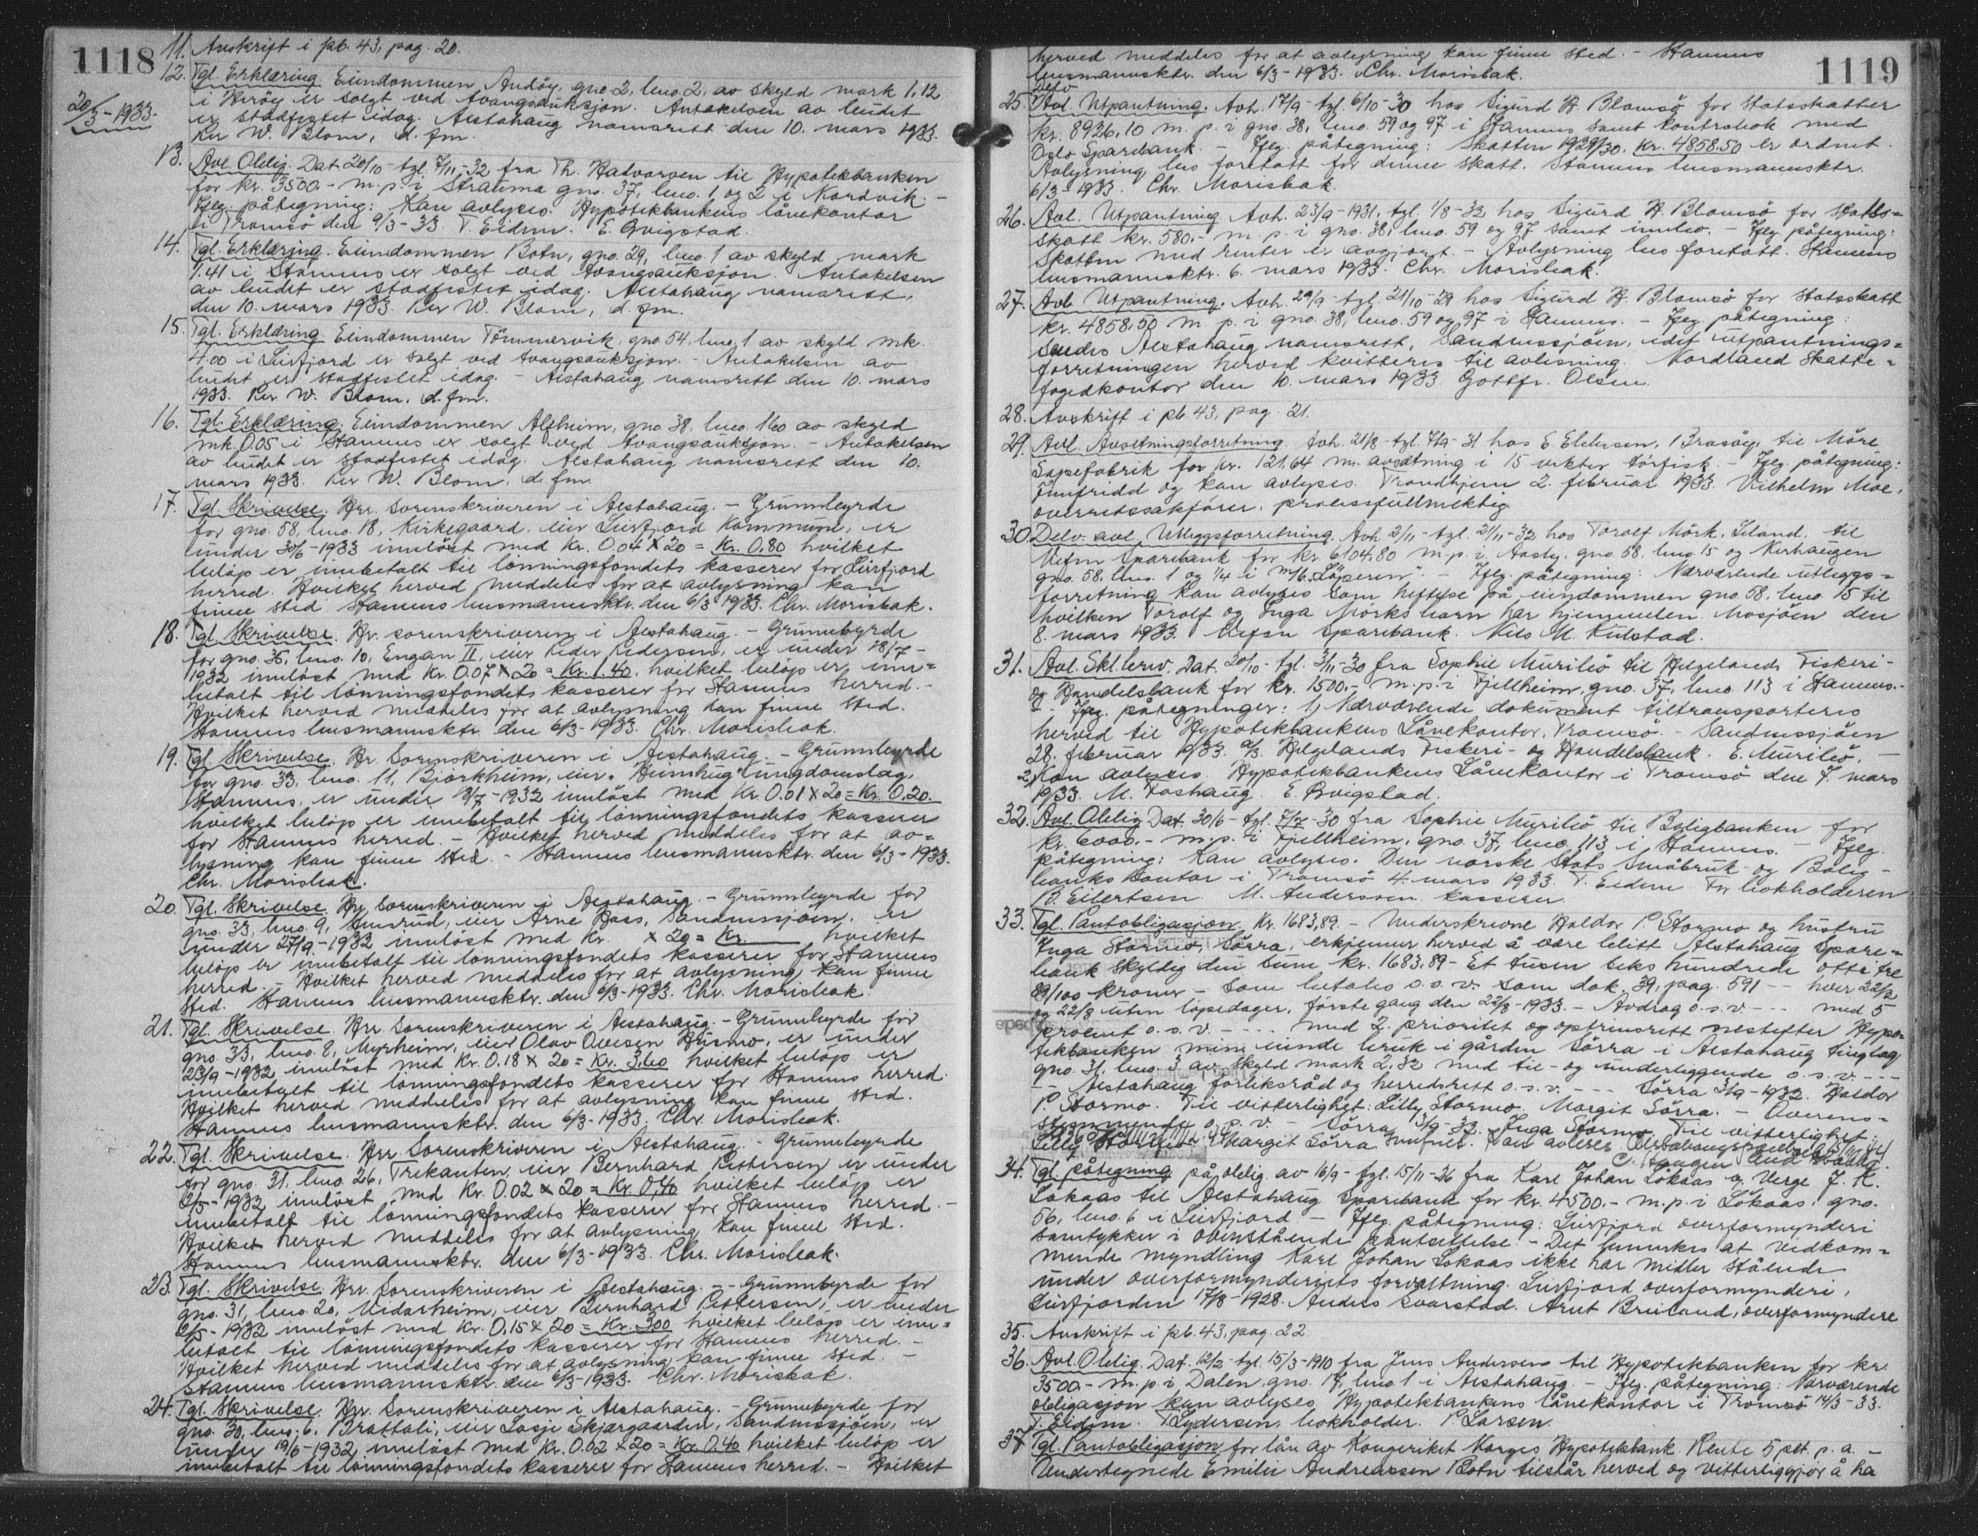 1118
11. Avskrift i pb. 43, pag. 20.
12. Tgl. Erklæring. Eiendommen Andöy, gno. 2, bno. 2, av skyld mark 1.12
20/3-1933.
i Heröy er solgt ved tvangsauksjon. Antakelsen av budet
er stadfestet idag. Alstahaug namsrett den 10. mars 1933.
Per W. Blom, d. fm.
13. Avl. Oblig. Dat. 20/10 - tgl. 7/11-32 fra Th. Hatvorven til Hypotekbanken
for kr. 3500.- m. p. i Stralima gno. 37, bno. 1 og 2 i Nordvik. -
Iflg. påtegning: Kan avlyses. Hypotekbankens lånekontor
i Tromsö den 9/3-33. T. Eidem. E. Qvigstad.
14. Tgl. Erklæring. Eiendommen Botn, gno. 29, bno. 1 av skyld mark
1.41 i Stamnes er solgt ved tvangsauksjon. Antakelsen
av budet er stadfestet idag. Alstahaug namsrett,
den 10. mars 1933. Per W. Blom, d. fm.
15. Tgl. Erklæring. Eiendommen Tömmervik, gno. 54, bno. 1 av skyld mk.
4.00 i Leirfjord er solgt ved tvangsauksjon. - Antakelsen av
budet er stadfestet idag. - Alstahaug namsrett den 10. mars
1933. Per W. Blom, d. fm.
16. Tgl. Erklæring. Eiendommen Alfheim, gno. 38, bno. 160 av skyld
mk. 0.05 i Stamnes er solgt ved tvangsauksjon. - Antakelsen
av budet er stadfestet idag. Alstahaug namsrett den 10.
mars 1933. Per W. Blom, d. fm.
17. Tgl. Skrivelse. Hr. Sorenskriveren i Alstahaug. - Grunnbyrde
for gno. 58, bno. 18, Kirkegaard, eier Leirfjord kommune, er
under 30/6-1933 innlöst med kr. 0.04 x 20 = kr. 0.80 hvilket
belöp er innbetalt til lönningsfondets kasserer for Leirfjord
herred. Hvilket herved meddeles for at avlysning kan
finne sted. Stamnes lensmannsktr. den 6/3 1933. Chr. Morisbak.
18. Tgl. Skrivelse. Hr. sorenskriveren i Alstahaug. - Grunnbyrde
for gno. 35, bno. 10, Engan II, eier Peder Pedersen, er under 18/7 -
1932 innlöst med kr. 0.07 x 20 = kr. 1.40, hvilket belöp er inn=
betalt til lönningsfondets kasserer for Stamnes herred. -
Hvilket herved meddeles for at avlysning kan finne sted.
Stamnes lensmannsktr. den 6/3-1933. Chr. Morisbak.
19. Tgl. Skrivelse. Hr. Sorenskriveren i Alstahaug. - Grunnbyrde
for gno. 33, bno. 11, Bjørkheim, eier "Heimhug" ungdomslag,
Stamnes, er under 18/7-1932 innlöst med kr. 0.01 x 20 = kr. 0.20.
hvilket belöp er innbetalt til lönningsfondets kasserer
for Stamnes herred. - Hvilket herved meddeles for at av=
lysning kan finne sted. - Stamnes lensmannsktr. den 6/3-1933.
Chr. Morisbak.
20. Tgl. Skrivelse. Hr. Sorenskriveren i Alstahaug. - Grunnbyrde for
gno. 33, bno. 9, Husrud, eier Arne Hass, Sandnessjöen, er
under 27/9-1932 innlöst med kr. x 20 = kr. hvilket
belöp er innbetalt til lönningsfondets kasserer for Stamnes
herred. - Hvilket herved meddeles for at avlysning kan finne
sted. Stamnes lensmannsktr. den 6/3-1933. Chr. Morisbak.
21. Tgl. Skrivelse. Hr. Sorenskriveren i Alstahaug. - Grunnbyrde for
gno. 33, bno. 8, Myrheim, eier Olav Olvesen Husmo, er under
23/9-1932 innlöst med kr. 0.18 x 20 = kr. 3.60 hvilket belöp er
innbetalt til lönningsfondets kasserer for Stamnes herred.
Hvilket herved meddeles for at avlysning kan finne sted.
Stamnes lensmannsktr. den 6/3-1933. Chr. Morisbak.
22. Tgl. Skrivelse. Hr. Sorenskriveren i Alstahaug. - Grunnbyrde
for gno. 31, bno. 26, Trekanten, eier Bernhard Pettersen er under
2/5-1932 innlöst med kr. 0.02 x 20 = kr. 0.40 hvilket belöp er
innbetalt til lönningsfondets kasserer for Stamnes herred. -
Hvilket herved meddeles for at avlysning kan finne sted.
Stamnes lensmannsktr. den 6/3-1933. Chr. Morisbak.
23. Tgl. Skrivelse. Hr. Sorenskriveren i Alstahaug. - Grunnbyrde for
gno. 31, bno. 20, Vidarheim, eier Bernhard Pettersen, er under
2/5-1932 innlöst med kr. 0.15 x 20 = kr. 3.00 hvilket belöp er inn=
betalt til lönningsfondets kasserer for Stamnes herred. -
Hvilket herved meddeles for at avlysning kan finne sted. -
Stamnes lensmannsktr. den 6/3-1933. Chr. Morisbak.
24. Tgl. Skrivelse. Hr. Sorenskriveren i Alstahaug. - Grunnbyrde for
gno. 30, bno. 6, Brattali, eier Losje Skjærgaarden, Sandnessjöen, er
under 19/6-1932 innlöst med kr. 0.02 x 20 = kr. 0.40 hvilket belöp er
innbetalt til lönningsfondets kasserer for Stamnes herred. - Hvilket
1119
herved meddeles for at avlysning kan finne sted. - Stamnes
lensmannsktr. den 6/3-1933. Chr. Morisbak.
25. Delv. Avl. Utpantning. Avh. 17/9 - tgl. 6/10-30 hos Sigurd H. Blomsö for statsskatter
kr. 8926.10 m. p. i gno. 38, bno. 59 og 97 i Stamnes samt kontrabok med
Oslo Sparebank. - Iflg. påtegning: Skatten 1929/30, kr. 4858.50 er ordnet.
Avlysning bes foretatt for denne skatt. Stamnes lensmannsktr.
6/3-1933. Chr. Morisbak.
26. Avl. Utpantning. Avh. 23/9-1931, tgl. 1/8-32 hos Sigurd H. Blomsö for stats-
skatt kr. 580.- m. p. i gno. 38, bno. 59 og 97 samt innbo. - Iflg. påtegning:
Skatten med renter er avgjort. - Avlysning bes foretatt. Stamnes
lensmannsktr. 6. mars 1933. Chr. Morisbak.
27. Avl. Utpantning. Avh. 29/9 - tgl. 21/10-29 hos Sigurd H. Blomsö for statsskatt
kr. 4858.50 m. p. i gno. 38, bno. 59 og 97 i Stamnes. - Iflg. påtegning:
Sendes Alstahaug namsrett, Sandnessjöen, idet utpantnings=
forretningen herved kvitteres til avlesning. Nordland Skatte=
fogedkontor den 10. mars 1933. Gottfr. Olsen.
28. Avskrift i pb. 43, pag. 21.
29. Avl. Avsetningsforretning. Avh. 21/8 - tgl. 7/9-31 hos E. Eldersen, Brasöy, til Möre
Såpefabrik for kr. 121.64 m. avsetning i 15 vekter törfisk. - Iflg. påtegning:
Innfridd og kan avlyses. Trondhjem 2. februar 1933. Vilhelm Moe,
overrettssakförer, prosessfullmektig.
30. Delv. avl. Utleggsforretning. Avh. 2/11 - tgl. 21/11-32 hos Torolf Mörk, Leland, til
Vefsn Sparebank for kr. 6104.80 m. p. i Aasly, gno. 58, bno. 15 og Kirhaugen
gno. 58, bno. 1 og 1/4 i m/b. "Löperen". - Iflg. påtegning: Nærværende utleggs=
forretning kan avlyses som heftelse på eiendommen gno. 58, bno. 15 til
hvilken Torolf og Inga Mörks barn har hjemmelen. Mosjöen den
8. mars 1933. Vefsn Sparebank. Nils M. Kulstad.
31. Avl. Skl.brev. Dat. 20/10 - tgl. 3/11-30 fra Sophie Muribö til Helgelands Fiskeri-
og Handelsbank for kr. 1500.- m. p. i Fjellheim, gno. 37, bno. 113 i Stamnes. -
- Iflg. påtegninger: 1) Nærværende dokument tiltransporteres
herved til Hypotekbankens Lånekontor, Tromsö. - Sandnessjöen
28. februar 1933. a/s Helgelands Fiskeri- og Handelsbank. E. Muribö. -
2) Kan avlyses. Hypotekbankens Lånekontor i Tromsö den 7. mars
1933. M. Foshaug. E. Qvigstad.
32. Avl. Oblig. Dat. 30/6 - tgl. 7/7-30 fra Sophie Muribö til Boligbanken for
kr. 6000.- m. p. i Fjellheim, gno. 37, bno. 113 i Stamnes. - Iflg.
påtegning: Kan avlyses. Den norske Stats Småbruk- og Bolig-
banks kontor i Tromsö 4. mars 1933. T. Eidem. For bokholderen
B. Eilertsen. M. Anderssen kasserer.
33. Tgl. Pantobligasjon, kr. 1683,89. - Underskrevne Haldor P. Stormo og hustru
Inga Stormo, Sörra, erkjenner herved å være blitt Alstahaug Spare=
bank skyldig den sum kr. 1683,89 - Et tusen seks hundrede otti tre
89/100 kroner - som betales o.s.v. som dok. 39, pag. 591 - - hver 22/2
og 22/8 uten löpedager, förste gang den 22/8-1933. - Avdrag o.s.v. - - - med 5
procent o.s.v. - - - - med 2. prioritet og optrinsrett nestefter Hypo=
tekbanken min eiende bruk i gården Sörra i Alstahaug tinglag
gno. 31, bno. 3 av skyld mark 2.32 med til- og underliggende o.s.v. - - -
- - Alstahaug forliksråd og herredsrett o.s.v. - - - Sörra 3/9-1932. Haldor
P. Stormo. Til vitterlighet: Lilly Stormo. Margit Sörra. - Overens=
stemmende o.s.v. - Sörra 3/9-32. Inga Stormo. Til vitterlighet:
Lilly Stormo. Margit Sörra. Innfriet. Kan avleses.
34. Tgl. påtegning på oblig. av 16/9 - tgl. 15/11-26 fra Karl Johan Lökaas og Verge J. K.
Lökaas til Alstahaug Sparebank for kr. 4500.- m. p. i Lökaas, gno.
56, bno. 6 i Leirfjord. - Iflg. påtegning: Leirfjord overformynderi
samtykker i ovenstående pantsettelse. - Det bemerkes at vedkom=
mende myndling Karl Johan Lökaas ikke har midler stående
under overformynderiets forvaltning. Leirfjord overformynderi,
Leirfjorden 17/8-1928. Anders Svarstad. Arnt Breiland, overformyndere
35. Avskrift i pb. 43, pag. 22.
36. Avl. Oblig. Dat. 12/2 - tgl. 15/3-1910 fra Jens Andersen til Hypotekbanken for kr.
3500.- m. p. i Dalen, gno. 17, bno. 1 i Alstahaug. - Iflg. påtegning: Nærværende
obligasjon kan avlyses. Hypotekbankens lånekontor i Tromsö 14/3-33.
T. Eidem. T. Lydersen, bokholder. P. Larsen.
37. Tgl. Pantobligasjon for lån av Kongeriket Norges Hypotekbank. Rente 5 pct. p. a. -
Undertegnede Emilie Andreassen Botn tilstår herved og vitterliggjör å ha